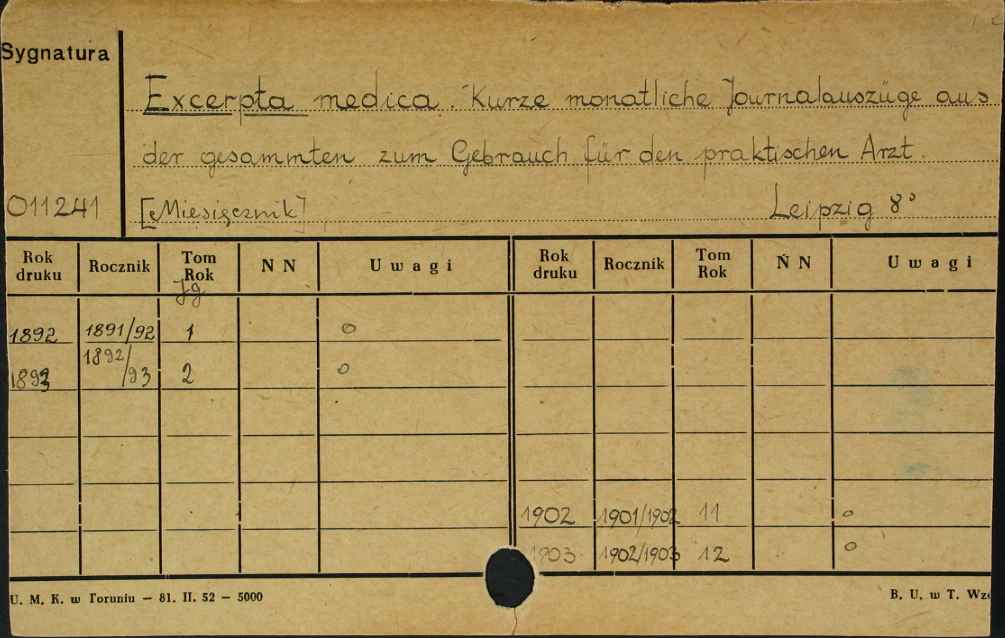 Sygnatura
Excerpta medica. Kurze monatliche Journalauszüge aus
der gesammten zum Gebrauch für den praktischen Arzt.
011241 [Miesięcznik] Leipzig 8°
Rok druku Rocznik Tom Rok N N Uwagi Rok druku Rocznik Tom Rok N N Uwagi
Jg
1892 1891/92 1 o
1893 1892/93 2 o
1902 1901/1902 11 o
1903 1902/1903 12 o
U. M. K. w Toruniu — 81. II. 52 — 5000 B. U. w T. Wzó